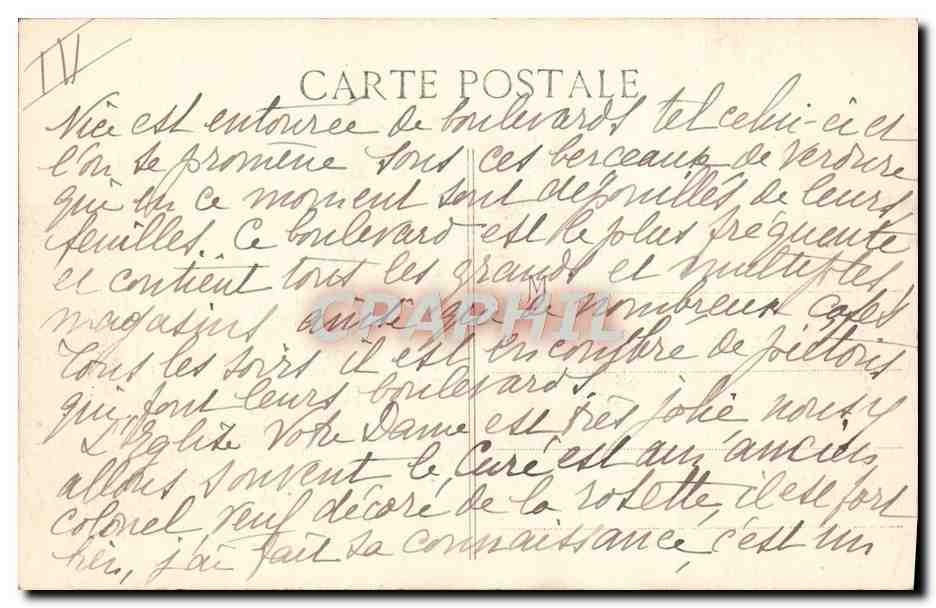 IVI
CARTE POSTALE
Nice est entourée de boulevards tel celui-ci et
l'on se promène sous ces berceaux de verdure
qui en ce moment sont dépouillés de leurs
feuilles. Ce boulevard est le plus fréquenté
et contient tous les grands et multiples
magasins ainsi que de nombreux cafés
Tous les soirs il est encombre de piétons
qui font leurs boulevards,
L'Eglise Notre Dame est très jolie nous y
allons souvent le Curé est un ancien
colonel, veuf décoré de la rosette, il est fort
bien, j'ai fait sa connaissance, c'est un
CPAPHIL